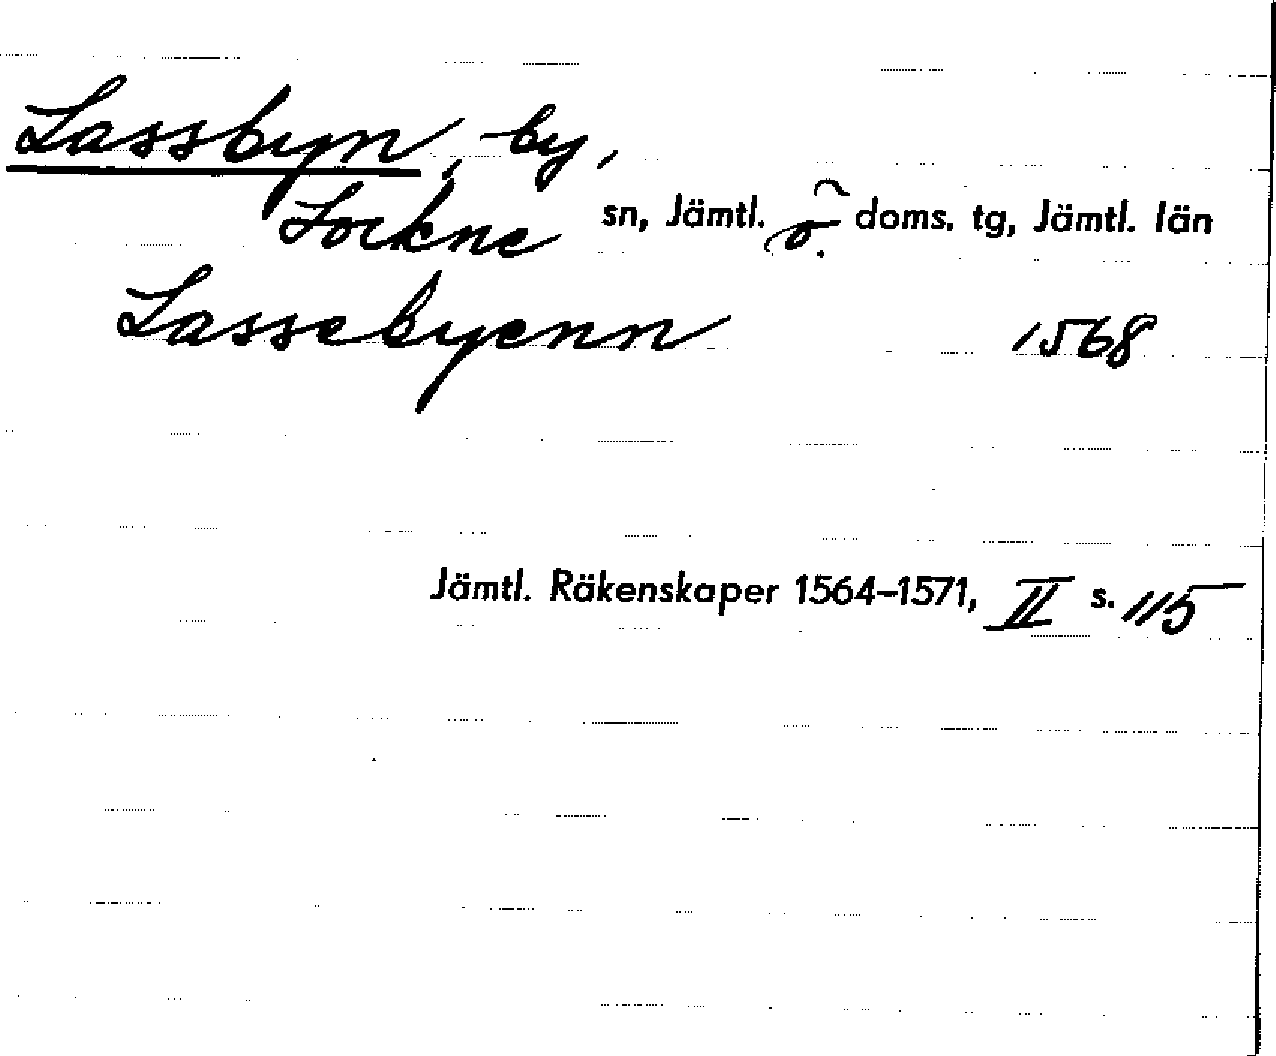 Lassbyn, by,
Lockne sn, Jämtl. ö. doms. tg, Jämtl. län
Lassebyenn 1568
Jämtl. Räkenskaper 1564–1571, II s. 115